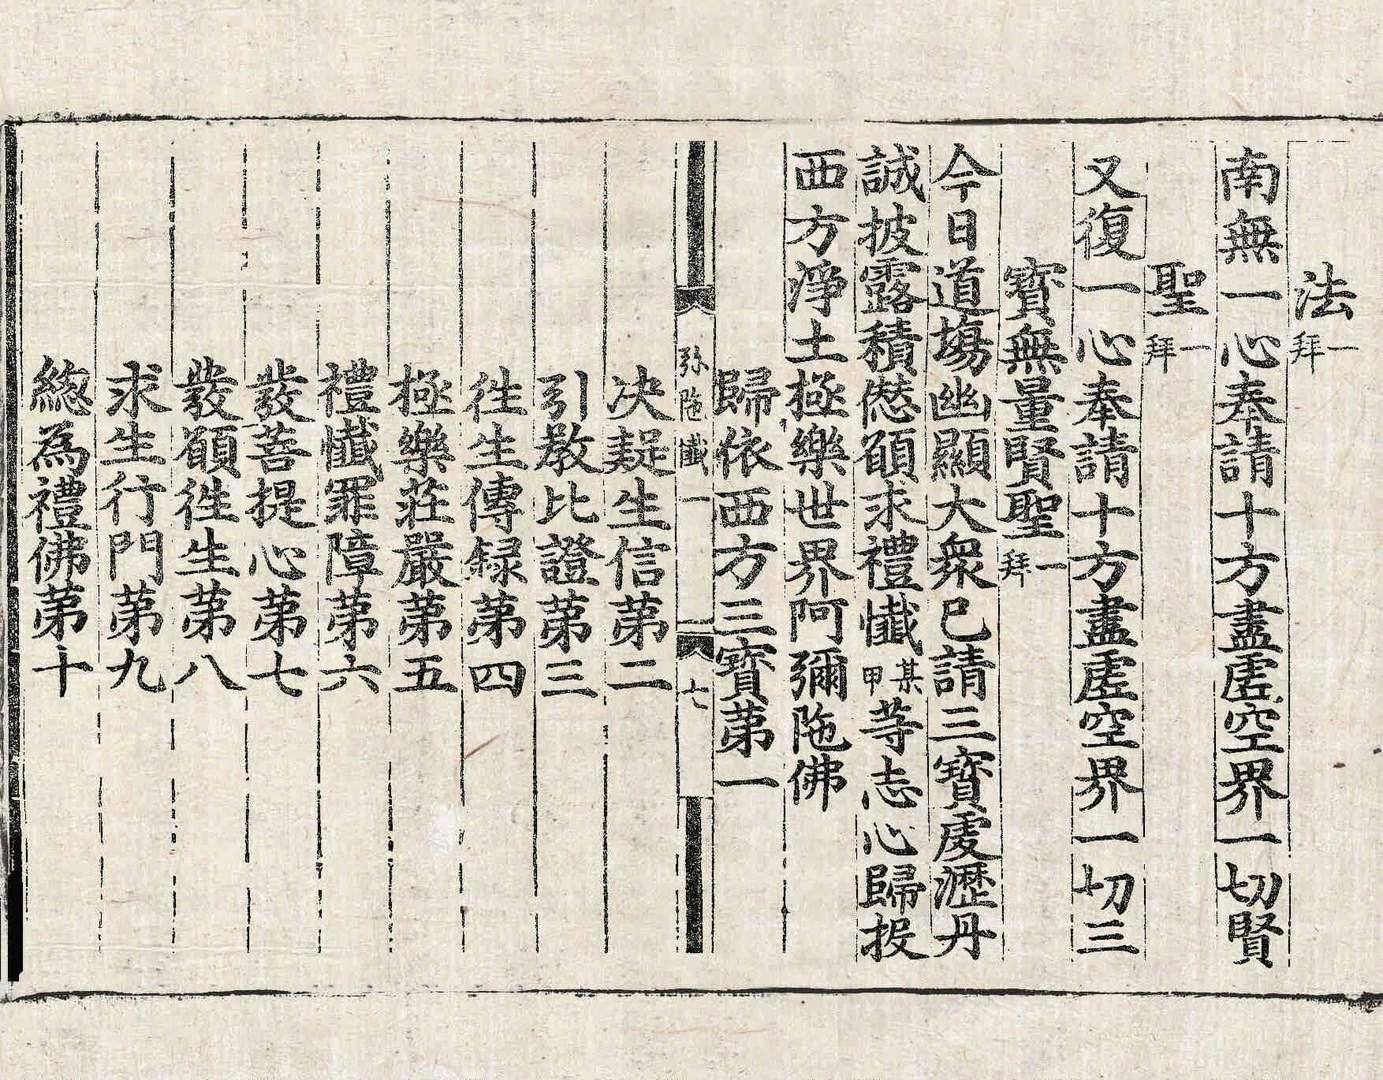 法一拜
南無一心奉請十方盡虛空界一切賢
聖一拜
又復一心奉請十方盡虛空界一切三
寶無量賢聖一拜
今日道場幽顯大衆已請三寶處瀝丹
誠披露積愆頋求禮懺某甲䓁志心歸投
西方淨土極樂世界阿彌陁佛
歸依西方三寶苐一
弥陁懺一 七
决疑生信苐二
引教比證苐三
徃生傳録苐四
極樂莊嚴苐五
禮懺罪障苐六
發菩提心苐七
發頋徃生苐八
求生行門苐九
緫為禮佛苐十